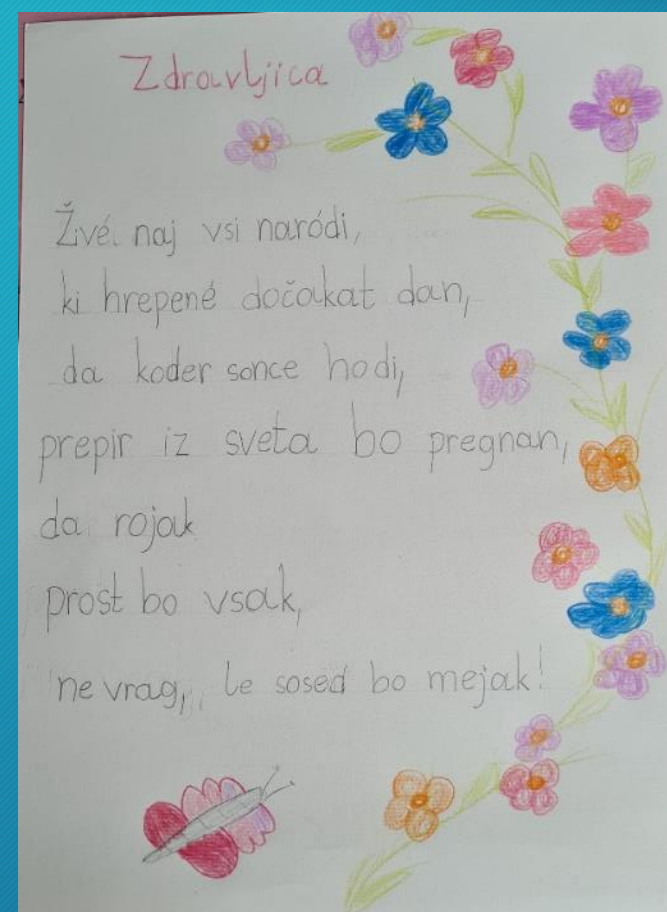 Zdravljica
Živé naj vsi naródi,
ki hrepené dočakat dan,
da koder sonce hodi,
prepir iz sveta bo pregnan,
da rojak
prost bo vsak,
ne vrag, le sosed bo mejak!